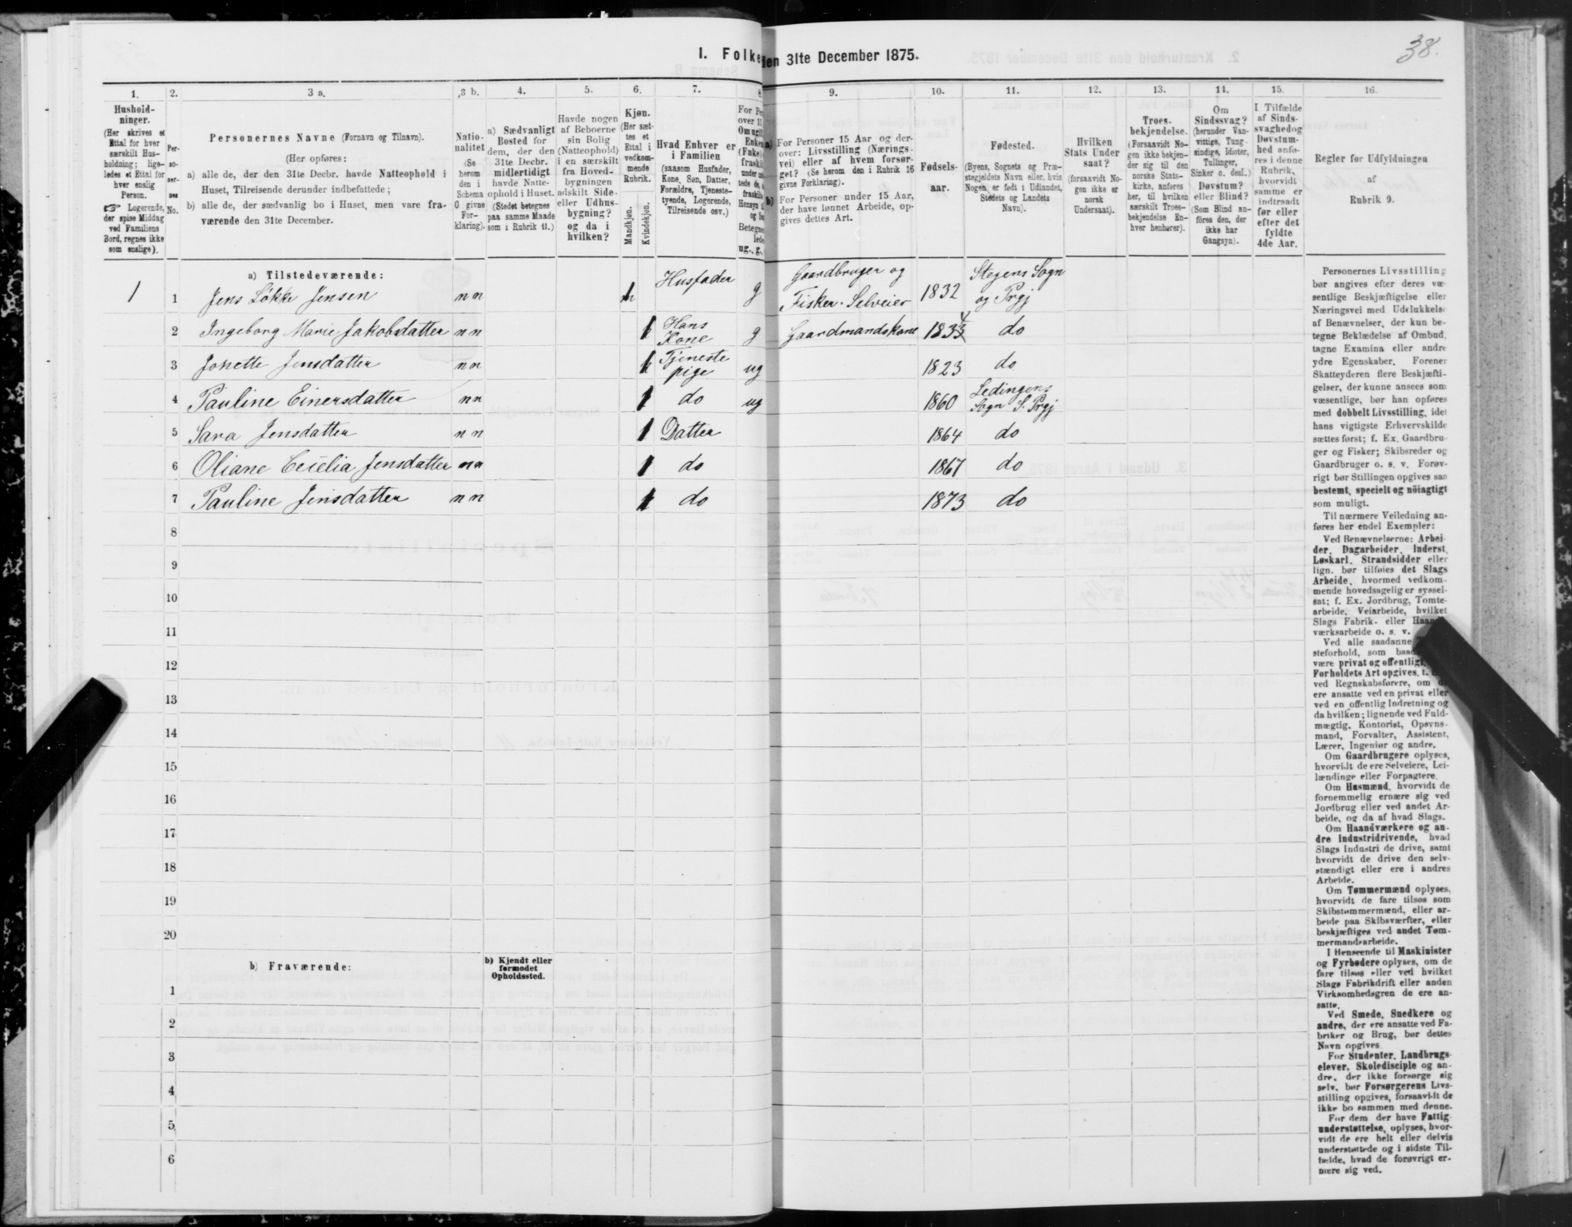 I. Folke
den 31te December 1875.
38.
1.
2.
3 a.
3 b.
4.
5.
6.
7.
8
9.
10.
11.
12.
13.
14.
15.
16.
Hushold-
ninger.
(Her skrives et
Ettal for hver
særskilt Hus-
holdning; lige-
ledes et Ettal for
hver enslig
Person.
☞ Logerende,
der spise Middag
ved Familiens
Bord, regnes ikke
som enslige).
Per-
so-
ner-
nes
No.
Personernes Navne (Fornavn og Tilnavn).
(Her opføres:
a) alle de, der den 31te Decbr. havde Natteophold i
Huset, Tilreisende derunder indbefattede;
b) alle de, der sædvanlig bo i Huset, men vare fra-
værende den 31te December.
Natio-
nalitet
(Se
herom
den i
Schema
0 givne
For-
klaring).
a) Sædvanligt
Bosted for
dem, der den
31te Decbr.
midlertidigt
havde Natte-
ophold i Huset.
(Stedet betegnes
paa samme Maade
som i Rubrik 11.)
Havde nogen
af Beboerne
sin Bolig
(Natteophold)
i en særskilt
fra Hoved-
bygningen
adskilt Side-
eller Udhus-
bygning?
og da i
hvilken?
Kjøn.
(Her sæt-
tes et
Ettal i
vedkom-
mende
Rubrik.
Mandkjøn.
Kvindekjøn.
Hvad Enhver er
i Familien
(saasom Husfader,
Kone, Søn, Datter,
Forældre, Tjeneste-
tyende, Logerende,
Tilreisende osv.)
a)
For Personer 15 Aar og der-
over: Livsstilling (Nærings-
vei) eller af hvem forsør-
get? (Se herom den i Rubrik 16
givne Forklaring).
b)
For Personer under 15 Aar,
der have lønnet Arbeide, op-
gives dettes Art.
Fødsels-
aar.
Fødested.
(Byens, Sognets og Præ-
stegjeldets Navn eller, hvis
Nogen er født i Udlandet,
Stedets og Landets
Navn).
Hvilken
Stats Under
saat?
(forsaavidt No-
gen ikke er
norsk
Undersaat).
Troes-
bekjendelse.
(Forsaavidt No-
gen ikke bekjen-
der sig til den
norske Stats-
kirke, anføres
her, til hvilken
særskilt Troes-
bekjendelse En-
hver henhører).
Om
Sindssvag?
(herunder Van-
vittige, Tung-
sindige, Idioter,
Tullinger,
Sinker o. desl.)
Døvstum?
eller Blind?
(Som Blind an-
føres den, der
ikke har
Gangsyn).
I Tilfælde
af Sinds-
svaghedog
Døvstum-
hed anfø-
res i denne
Rubrik,
hvorvidt
samme er
indtraadt
før eller
efter det
fyldte
4de Aar.
Regler før Udfyldningen
af
Rubrik 9.
a) Tilstedeværende:
1 1 Jens Løkke Jensen n n 1 Husfader g Gaardbruger og Fisker. Selveier 1832 Stegens Sogn og Prgj
2 Ingeborg Marie Jakobsdatter n n 1 Hans Kone g Gaardmandskone 1834 do
3 Jonette Jensdatter n n 1 Tjeneste pige ug 1823 do
4 Pauline Einersdatter n n 1 do ug 1860 Ledingens Sogn S. Prgj
5 Sara Jensdatter n n 1 Datter 1864 do
6 Oliane Cecelia Jensdatter n n 1 do 1867 do
7 Pauline Jensdatter n n 1 do 1873 do
8
9
10
11
12
13
14
15
16
17
18
19
20
b) Fraværende:
b) Kjendt eller
formodet
Opholdssted.
1
2
3
4
5
6
Personernes Livsstilling
bør angives efter deres væ-
sentlige Beskjæftigelse eller
Næringsvei med Udelukkelse
af Benævnelser, der kun be-
tegne Beklædelse af Ombud,
tagne Examina eller andre
ydre Egenskaber. Forener
Skatteyderen flere Beskjæfti-
gelser, der kunne ansees som
væsentlige, bør han opføres
med dobbelt Livsstilling, idet
hans vigtigste Erhvervskilde
sættes først; f. Ex. Gaardbru-
ger og Fisker; Skibsreder og
Gaardbruger o. s. v. Forøv-
rigt bør Stillingen opgives saa
bestemt, specielt og nöiagtigt
som muligt.
Til nærmere Veiledning an-
føres her endel Exempler:
Ved Benævnelserne: Arbei-
der, Dagarbeider, Inderst,
Løskarl, Strandsidder eller
lign. bør tilføies det Slags
Arbeide, hvormed vedkom-
mende hovedsagelig er syssel-
sat; f. Ex. Jordbrug, Tomte-
arbeide, Veiarbeide, hvilket
Slags Fabrik- eller Haand-
værksarbeide o. s. v.
Ved alle saadanne
steforhold, som baade
være privat og offentligt,
Forholdets Art opgives, t.
ved Regnskabsførere, om
ere ansatte ved en privat eller
ved en offentlig Indretning og
da hvilken; lignende ved Fuld-
mægtig, Kontorist, Opsyns-
mand, Forvalter, Assistent,
Lærer, Ingeniør og andre.
Om Gaardbrugere oplyses,
hvorvidt de ere Selveiere, Lei-
lændinge eller Forpagtere.
Om Husmænd, hvorvidt de
fornemmelig ernære sig ved
Jordbrug eller ved andet Ar-
beide, og da af hvad Slags.
Om Haandværkere og an-
dre Industridrivende, hvad
Slags Industri de drive, samt
hvorvidt de drive den selv-
stændigt eller ere i andres
Arbeide.
Om Tømmermænd oplyses,
hvorvidt de fare tilsøs som
Skibstømmermænd, eller ar-
beide paa Skibsværfter, eller
beskjæftiges ved andet Tøm-
mermandsarbeide.
I Henseende til Maskinister
og Fyrbødere oplyses, om de
fare tilsøs eller ved hvilket
Slags Fabrikdrift eller anden
Virksomhedsgren de ere an-
satte.
Ved Smede, Snedkere og
andre, der ere ansatte ved Fa-
briker og Brug, bør dettes
Navn opgives.
For Studenter, Landbrugs-
elever, Skoledisciple og an-
dre, der ikke forsørge sig
selv, bør Forsørgerens Livs-
stilling opgives, forsaavidt de
ikke bo sammen med denne.
For dem der have Fattig-
understøttelse, oplyses, hvor-
vidt de ere helt eller delvis
understøttede og i sidste Til-
fælde, hvad de forøvrigt er-
nære sig ved.